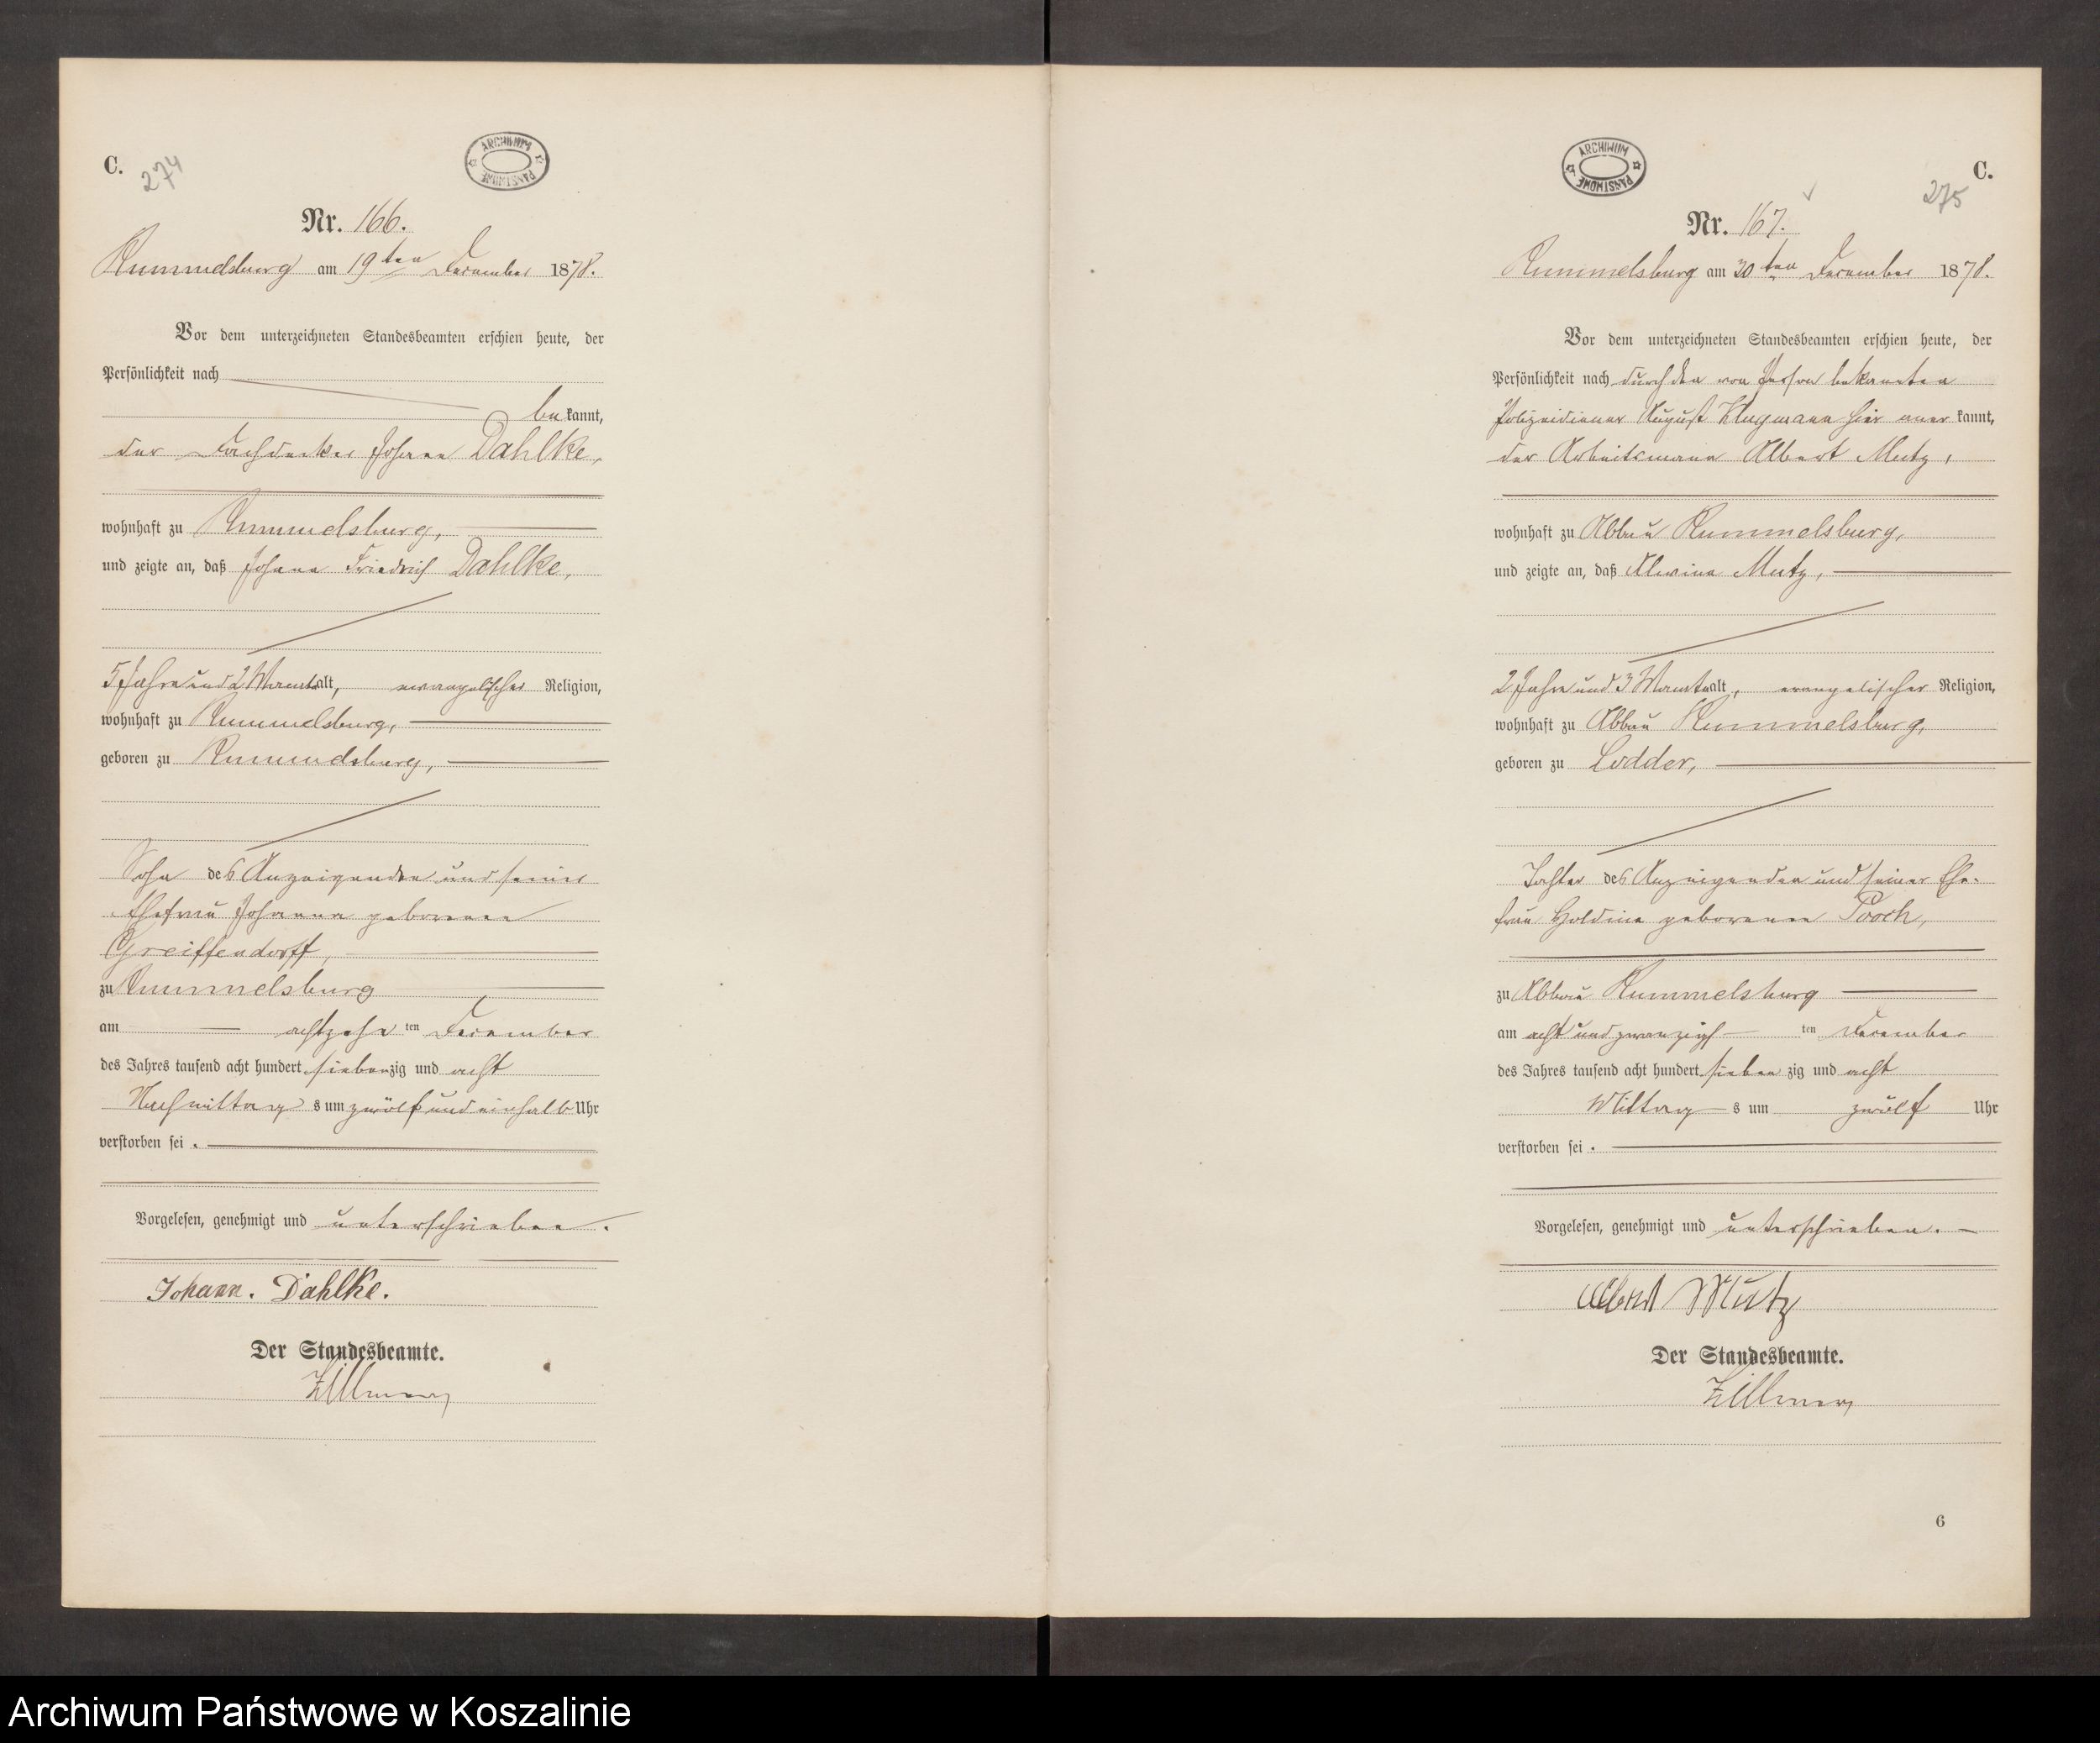 C.
274
ARCHIWUM PAŃSTWOWE
Nr. 166.
Rummelsburg am 19ten December 1878.
Vor dem unterzeichneten Standesbeamten erschien heute, der
Persönlichkeit nach
bekannt,
der Dachdecker Johann Dahlke,
wohnhaft zu Rummelsburg,
und zeigte an, daß Johann Friedrich Dahlke,
5 Jahre und 2 Monate alt, evangelischer Religion,
wohnhaft zu Rummelsburg,
geboren zu Rummelsburg,
Sohn des Anzeigenden und seiner
Ehefrau Johanna geborenen
Greiffendorff,
zu Rummelsburg
am achtzehnten December
des Jahres tausend acht hundert siebenzig und acht
Nachmittags um zwölf und einhalb Uhr
verstorben sei.
Vorgelesen, genehmigt und unterschrieben.
Johann. Dahlke.
Der Standesbeamte.
Zillmer
ARCHIWUM PAŃSTWOWE
C.
275
Nr. 167.
Rummelsburg am 30ten December 1878.
Vor dem unterzeichneten Standesbeamten erschien heute, der
Persönlichkeit nach durch den von Person bekannten
Polizeidiener August Klugmann hier anerkannt,
der Arbeitsmann Albert Mutz,
wohnhaft zu Abbau Rummelsburg,
und zeigte an, daß Alwine Mutz,
2 Jahre und 3 Monate alt, evangelischer Religion,
wohnhaft zu Abbau Rummelsburg,
geboren zu Lodder,
Tochter des Anzeigenden und seiner Ehe-
frau Holdine geborenen Pooch,
zu Abbau Rummelsburg
am acht und zwanzigsten December
des Jahres tausend acht hundert siebenzig und acht
Mittags um zwölf Uhr
verstorben sei.
Vorgelesen, genehmigt und unterschrieben.
Albert Mutz
Der Standesbeamte.
Zillmer
6
Archiwum Państwowe w Koszalinie